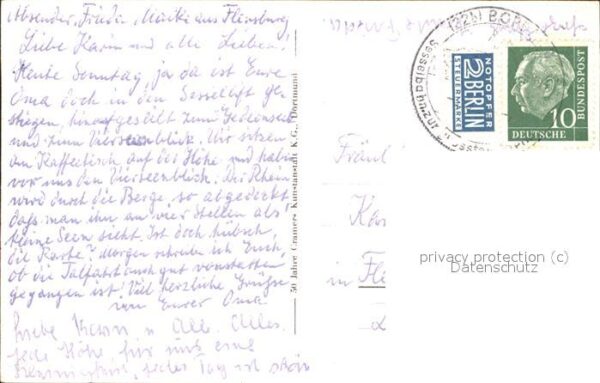 Absender: Frieda, Maika aus Flensburg
Liebe Karin und alle Lieben!
Heute Sonntag ja da ist Eure
Oma doch in den Sessellift ge-
stiegen, hinauf zum Gedeonseck
und zum Vierseenblick. Wir sitzen
am Kaffeetisch auf der Höhe und haben
vor uns den Vierseenblick. Der Rhein
wird durch die Berge, so abgedeckt
daß man ihn an vier Stellen als
kleine Seen sieht. Ist doch hübsch,
die Karte? Morgen schreibe ich Euch,
ob die Talfahrt auch gut vonstatten
gegangen ist! Viel herzliche Grüße
von Eurer Oma
Liebe Karin u. Alle
jede Höhe, für uns eine
jeder Tag ist schön
50 Jahre Cramers Kunstanstalt K.G., Dortmund
(22b)
Sesselbahn
NOTOPFER
2 BERLIN
STEUERMARKE
10
DEUTSCHE
BUNDESPOST
Fräul
Ka
in Fle
privacy protection (c)
Datenschutz